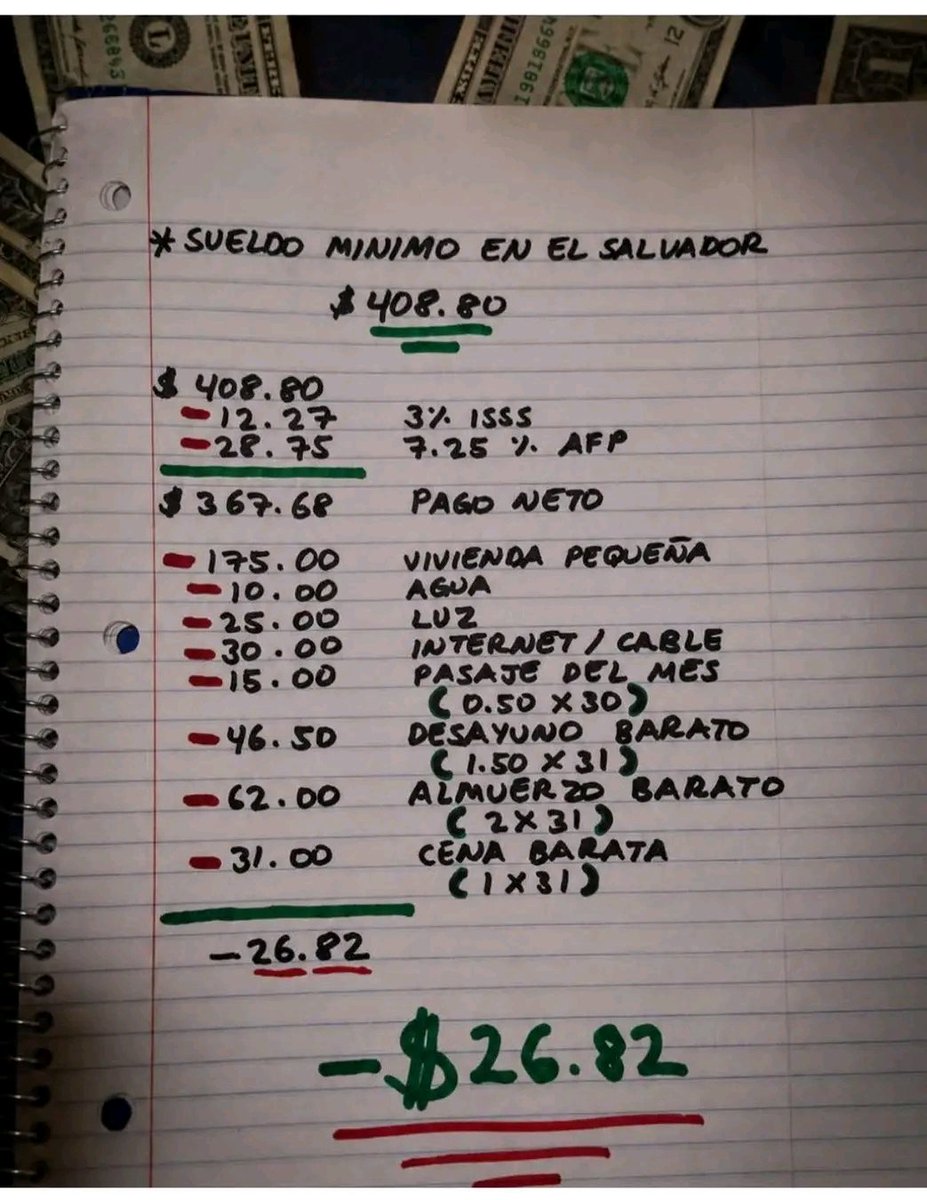 * SUELDO MINIMO EN EL SALVADOR
$ 408.80
$ 408.80
-12.27 3% ISSS
-28.75 7.25 % AFP
$ 367.68 PAGO NETO
-175.00 VIVIENDA PEQUEÑA
-10.00 AGUA
-25.00 LUZ
-30.00 INTERNET / CABLE
-15.00 PASAJE DEL MES
(0.50 X 30)
-46.50 DESAYUNO BARATO
(1.50 X 31)
-62.00 ALMUERZO BARATO
(2 X 31)
-31.00 CENA BARATA
(1 X 31)
-26.82
-$26.82